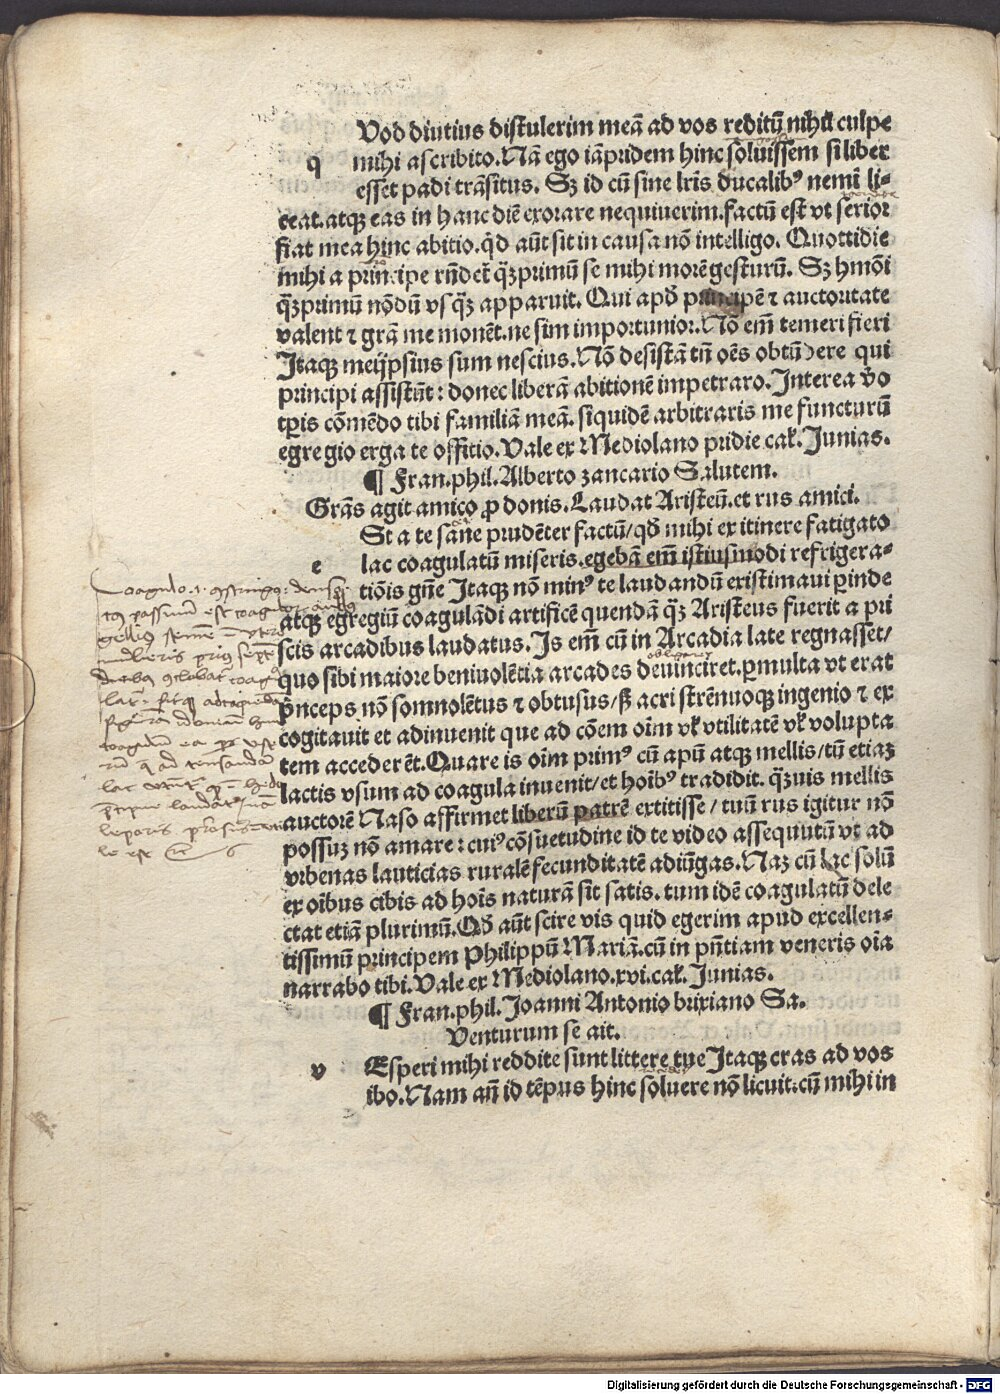 Uod diutius distulerim meā ad vos reditū nihil culpe
q mihi ascribito. Nā ego iāpridem hinc soluissem si liber
esset padi trāsitus. Sꝫ id cū sine lr̄is ducalibꝰ nemī li⸗
ceat. atqꝫ eas in hanc diē exorare nequiuerim. factū est vt serior
fiat mea hinc abitio. qd̄ aūt sit in causa nō intelligo. Quottidie
mihi a principe rn̄det̄ qꝫprimū se mihi morē gesturū. Sꝫ hmōi
qꝫprimū nōdū vsqꝫ apparuit. Qui apd̄ principē ⁊ auctoritate
valent ⁊ grā me monēt. ne sim importunior. Nō em̄ temeri fieri
Itaqꝫ meijpsius sum nescius. Nō desistā tn̄ oēs obtūdere qui
principi assistūt: donec liberā abitionē impetraro. Interea v̄o
tp̄ris cōmēdo tibi familiā meā. siquidē arbitraris me functurū
egregio erga te offitio. Vale ex Mediolano pridie cal̄. Junias.
¶ Fran. phil. Alberto zancario Salutem.
Grās agit amico ꝓ donis. Laudat Aristeū. et rus amici.
St a te sane prudēter factū/ qd̄ mihi ex itinere fatigato
e lac coagulatū miseris. egebā em̄ istiusmodi refrigera⸗
tiōis gn̄e Itaqꝫ nō minꝰ te laudandū existimaui ꝑinde
atqꝫ egregiū coagulādi artificē quendā qꝫ Aristeus fuerit a pri
scis arcadibus laudatus. Is em̄ cū in Arcadia late regnasset/
obligaret
quo sibi maiore beniuolētia arcades deuinciret. ꝑmulta vt erat
p̄nceps nō somnolētus ⁊ obtusus/ sꝫ acri strēnuoqꝫ ingenio ⁊ ex
cogitauit et adinuenit que ad cōem oīm vl̄ vtilitatē vl̄ volupta
tem accederēt. Quare is oīm primꝰ cū apū atqꝫ mellis/ tū etiaꝫ
lactis vsum ad coagula inuenit/ et hoībꝰ tradidit. qꝫuis mellis
auctorē Naso affirmet liberū patrē extitisse/ tuū rus igitur nō
possuꝫ nō amare: cuiꝰ cōsuetudine id te video assequutū vt ad
vrbenas lauticias ruralē fecunditatē adiūgas. Naꝫ cū lac solū
ex oībus cibis ad hoīs naturā sit satis. tum idē coagulatū dele
ctat etiā plurimū. Qd̄ aūt scire vis quid egerim apud excellen⸗
tissimū principem Philippū Mariā. cū in pn̄tiam veneris oīa
narrabo tibi. Vale ex Mediolano. xvi. cal̄. Junias.
¶ Fran. phil. Joanni Antonio brixiano Sa.
Venturum se ait.
v Esperi mihi reddite sunt littere tue Itaqꝫ cras ad vos
ibo. Nam an̄ id tēpus hinc soluere nō licuit: cū mihi in
Digitalisierung gefördert durch die Deutsche Forschungsgemeinschaft - DFG